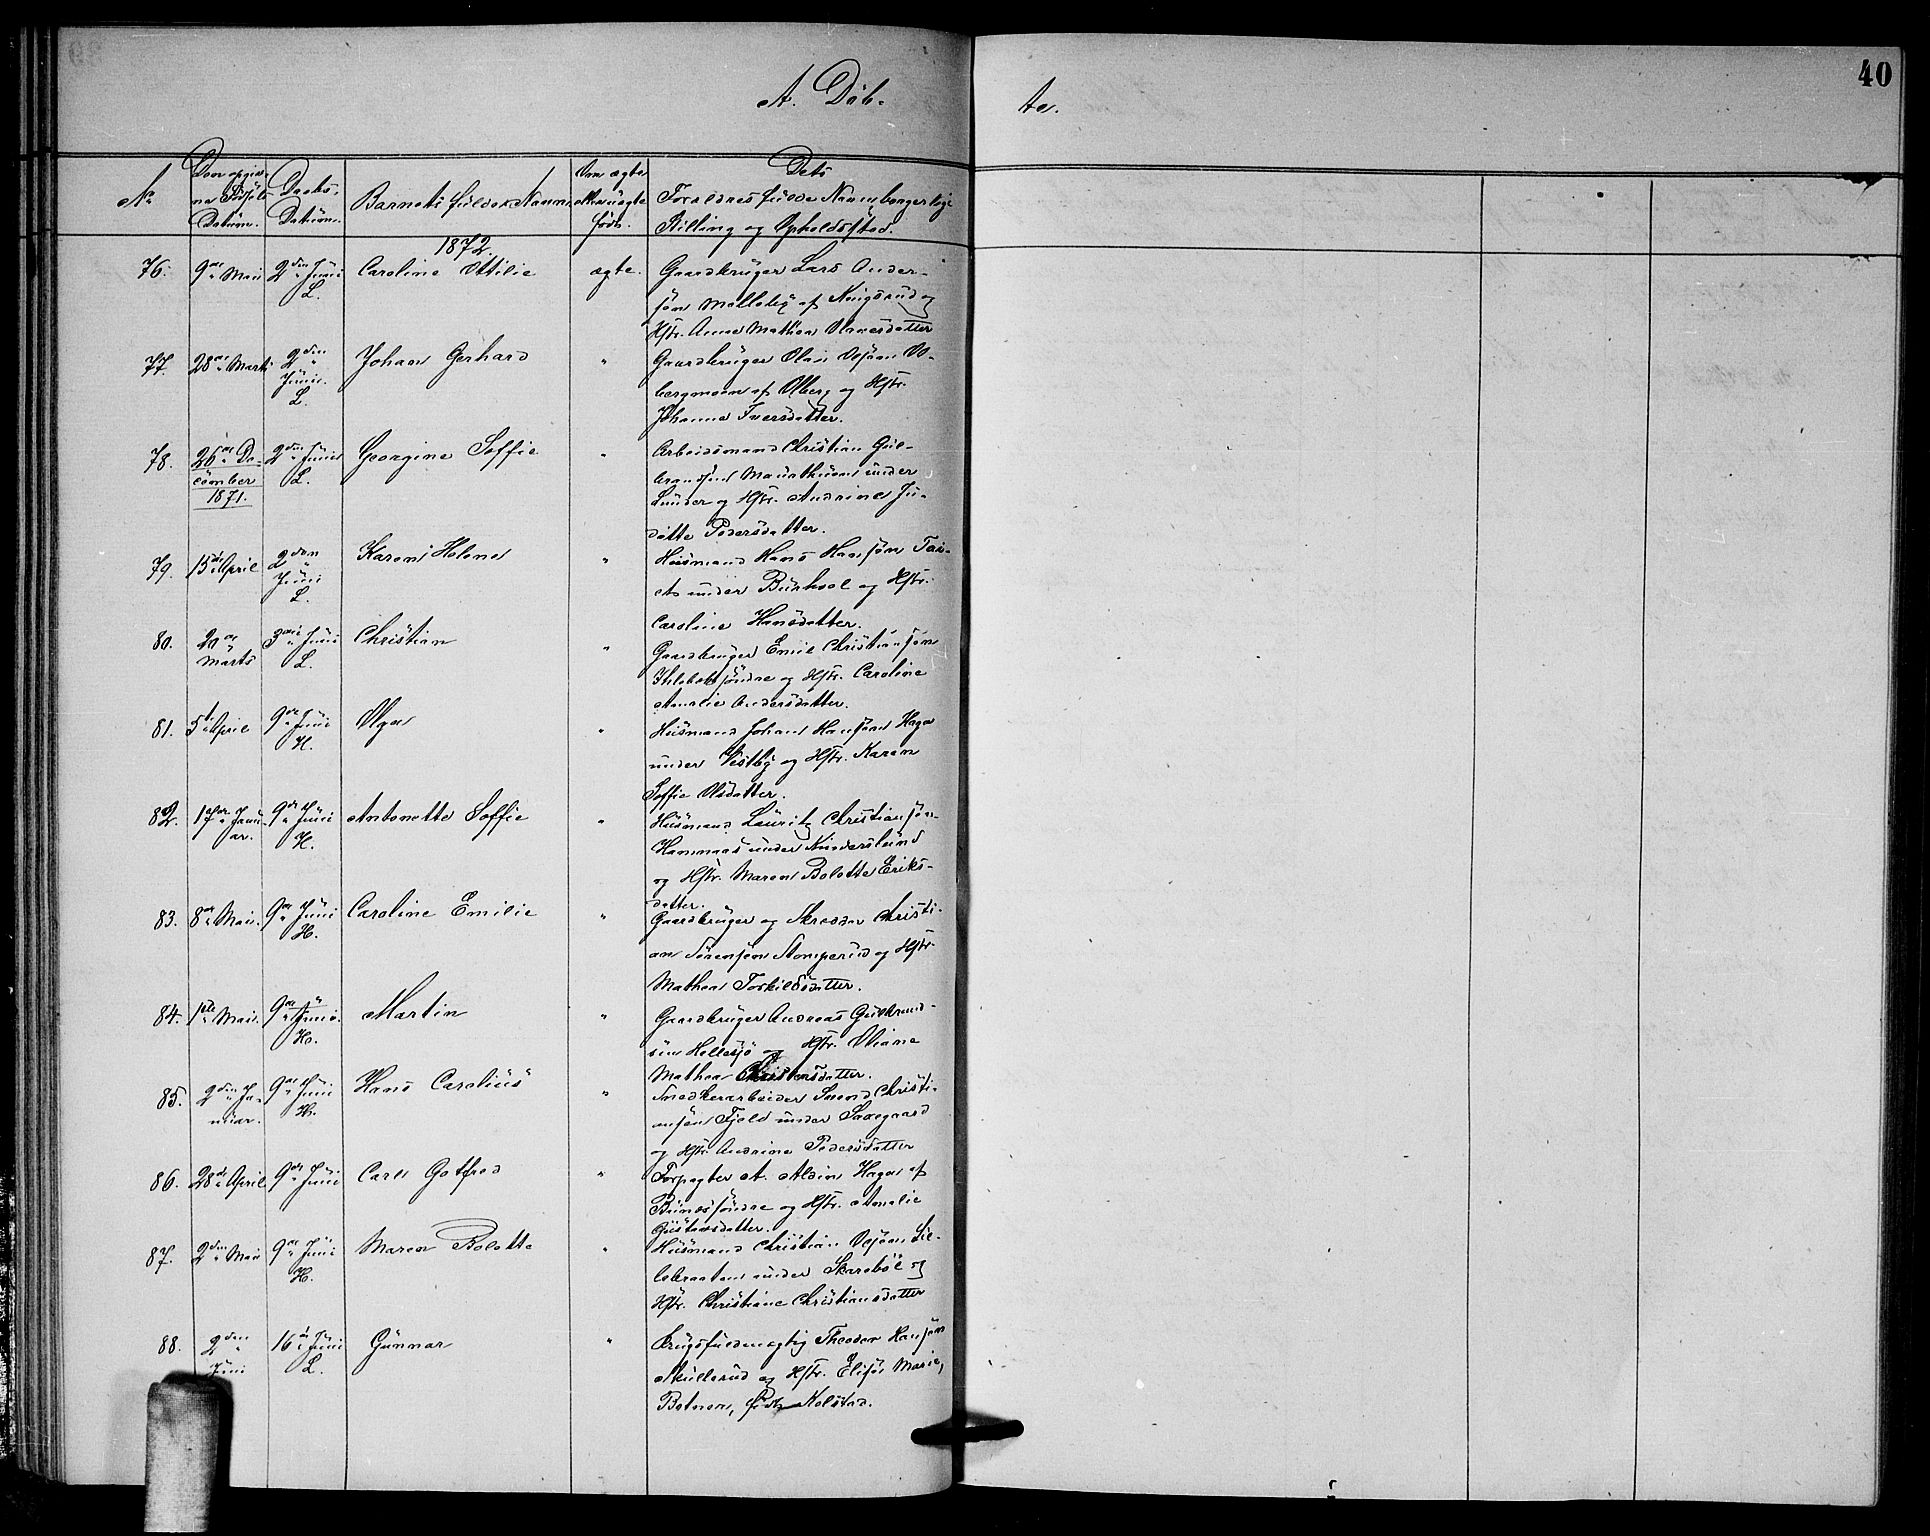 40
A. Döb-
te.
No
Den opgiv-
ne Födsels
Datum.
Daabs-
Datum.
Barnets fulde Navn.
Om ægte
eller uægte
født.
Dets
Forældres fulde Navn, borgerlige
Stilling og Opholdssted.
1872.
76. 9de Mai 2den Juni L. Caroline Ottilie ægte. Gaardbruger Lars Ander-
sön Melleby af Kingsrud og
Hstr. Anne Mathea Olavesdatter
77. 28de Marts 2den Juni L. Johan Gerhard " Gaardbruger Olaus Olsen
bergmoen af Olberg og Hstr.
Johanne Iversdatter.
78. 26de De-
cember
1871. 2den Juni L. Georgine Soffie " Arbeidsmand Christian Gul-
brandsen Maurthuen under
Lunder og Hstr. Andrine Ju-
ditte Pedersdatter.
79. 15de April 2den Juni L. Karen Helene " Husmand Hans Hansön
under Buerhol og Hstr.
Caroline Hansdatter.
80. 20de
Marts 3die Juni L. Christian " Gaardbruger Emil Christiansön
söndre og Hstr. Caroline
Amalie Andersdatter.
81. 5te April 9de Juni H. Olga " Husmand Johan Hansön Haga
under Vestby og Hstr. Karen
Soffie Olsdatter.
82. 17de Janu-
ar. 9de Juni H. Antonette Soffie " Husmand Lauritz Christiansön
Hammaas under Kinderslund
og Hstr. Maren Bolette Eriks-
datter.
83. 8de Mai. 9de Juni H. Caroline Emilie " Gaardbruger og Skrædder Christi-
an Sörensön Stomperud og Hstr.
Mathea Torkildsdatter.
84. 1ste Mai. 9de Juni. H. Martin " Gaardbruger Andreas Gulbrand-
sen Hellesjö og Hstr. Oliane
Mathea Christensdatter.
85. 2den Ja-
nuar. 9de Juni H. Hans Carolius " Snedkerarbeider Svend Christi-
ansen Fjeld under Saxegaard
og Hstr. Andrine Pedersdatter
86. 28de April 9de Juni Carl Gotfred " Forpagter A. Aldin Haga af
Bunæs söndre og Hstr. Amalie
Gustavsdatter.
87. 2den Mai 9de Juni H. Maren Bolette " Husmand Christian Olsön Lil-
lebraaten under Skarebøl og
Hstr. Christiane Christiansdatter
88. 2den
Juni 16de Juni L. Gunnar " Brugsfuldmægtig Theodor Hansön
Skullerud og Hstr. Elise Marie
Botner, född Kolstad.